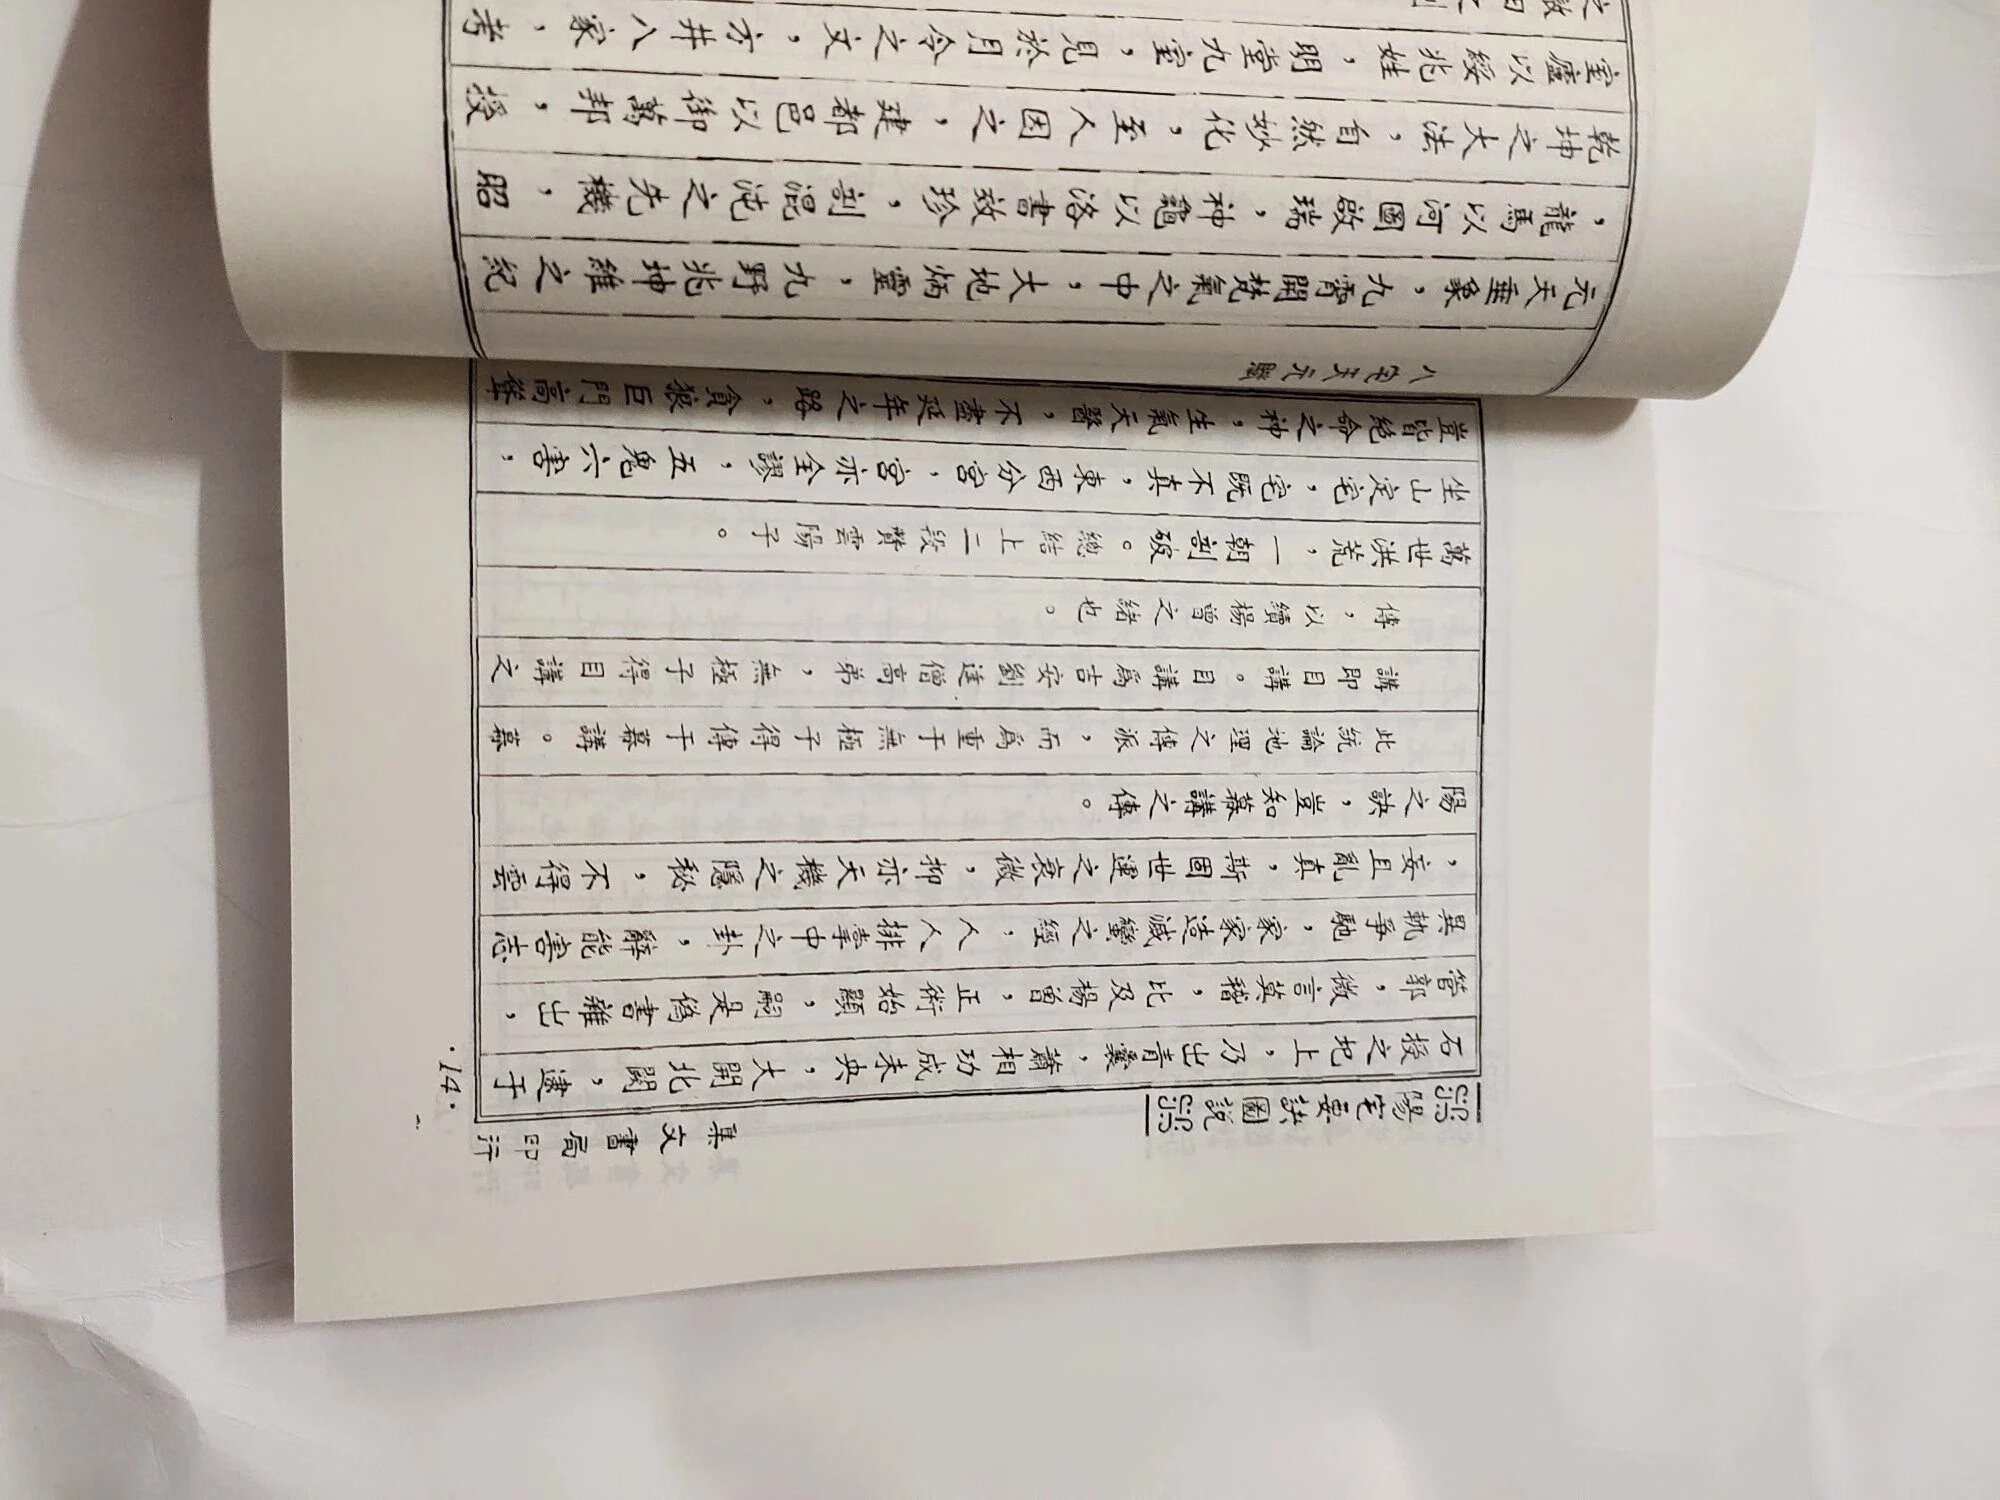 陽宅要訣圖說
石授之圯上，乃出青囊，蕭相功成未央，大開北闕，逮于
管郭，微言莫稽，比及楊曾，正術始顯，嗣是偽書雜出，
異軌爭馳，家家造滅蠻之經，人人排掌中之卦，辭能害志
，妄且亂真，斯固世運之衰微，抑亦天機之隱秘，不得雲
陽之訣，豈知幕講之傳。
此統論地理之傳派，而爲于重無極子得傳于幕講。幕
講即目講。目講爲吉安劉達僧高弟，無極子得目講之
傳，以續楊曾之緒也。
萬世洪荒，一朝剖破。總結上二段贊雲陽子。
坐山定宅，宅既不真，東西分宮，宮亦全謬，五鬼六害，
豈皆絕命之神，生氣天醫，不盡延年之路，貪狼巨門高聳
集文書局印行
·14·
八宅天元賦
元天垂象，九霄開梵氣之中，大地炳靈，九野兆坤維之紀
，龍馬以河圖啟瑞，神龜以洛書效珍，剖混沌之先機，昭
乾坤之大法，自然妙化，至人因之，建都邑以御萬邦，授
室廬以綏兆姓，明堂九室，見於月令之文，方井八家，考